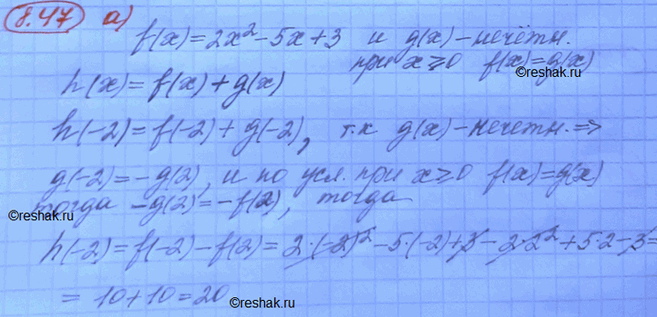 8.47 а) f(x)=2x²-5x+3 и g(x)-нечётн.
при x≥0 f(x)=g(x)
©reshak.ru
h(x)=f(x)+g(x)
h(-2)=f(-2)+g(-2), т.к g(x)-нечетн.=>
g(-2)=-g(2), и по усл. при x≥0 f(x)=g(x)
тогда -g(2)=-f(2), тогда
©reshak.ru
h(-2)=f(-2)-f(2)=2·(-2)²-5·(-2)+3-2·2²+5·2-3=
=10+10=20
©reshak.ru